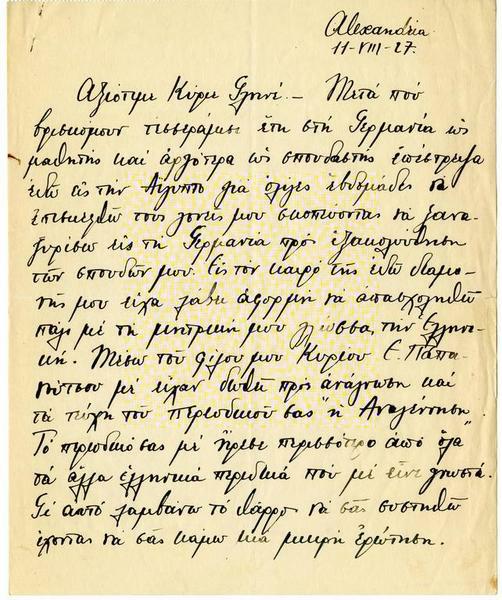 Alexandria
11-VIII-27.
Ἀξιότιμε Κύριε Γληνέ. – Μετά πού
βρισκόμουν τεσσεράμισι ἔτη στή Γερμανία ὡς
μαθητής καί ἀργότερα ὡς σπουδαστής ἐπέστρεψα
ἐδῶ εἰς τήν Αἴγυπτο γιά ὀλίγες ἑβδομάδες νά
ἐπισκεφθῶ τούς γονεῖς μου σκοπεύοντας νά ξανα-
γυρίσω εἰς τή Γερμανία πρός ἐξακολούθηση
τῶν σπουδῶν μου. Εἰς τόν καιρό τῆς ἐδῶ διαμο-
νῆς μου εἶχα λάβει ἀφορμή νά ἀπασχοληθῶ
πάλι μέ τή μητρική μου γλῶσσα, τήν Ἑλληνι-
κή. Μέσω τοῦ φίλου μου Κυρίου Ε. Παπα-
νούτσου μέ εἶχαν δοθεῖ πρός ἀνάγνωση καί
τά τεύχη τοῦ περιοδικοῦ σας "ἡ Ἀναγέννηση"
Τό περιοδικό σας μέ ἤρεσε περισσότερο ἀπό ὅλα
τά ἄλλα ἑλληνικά περιοδικά πού μέ εἶνε γνωστά.
Γι' αὐτό λαμβάνω τό θάρρος νά σᾶς συστηθῶ
ἔχοντας νά σᾶς κάμω μιά μικρή ἐρώτηση.